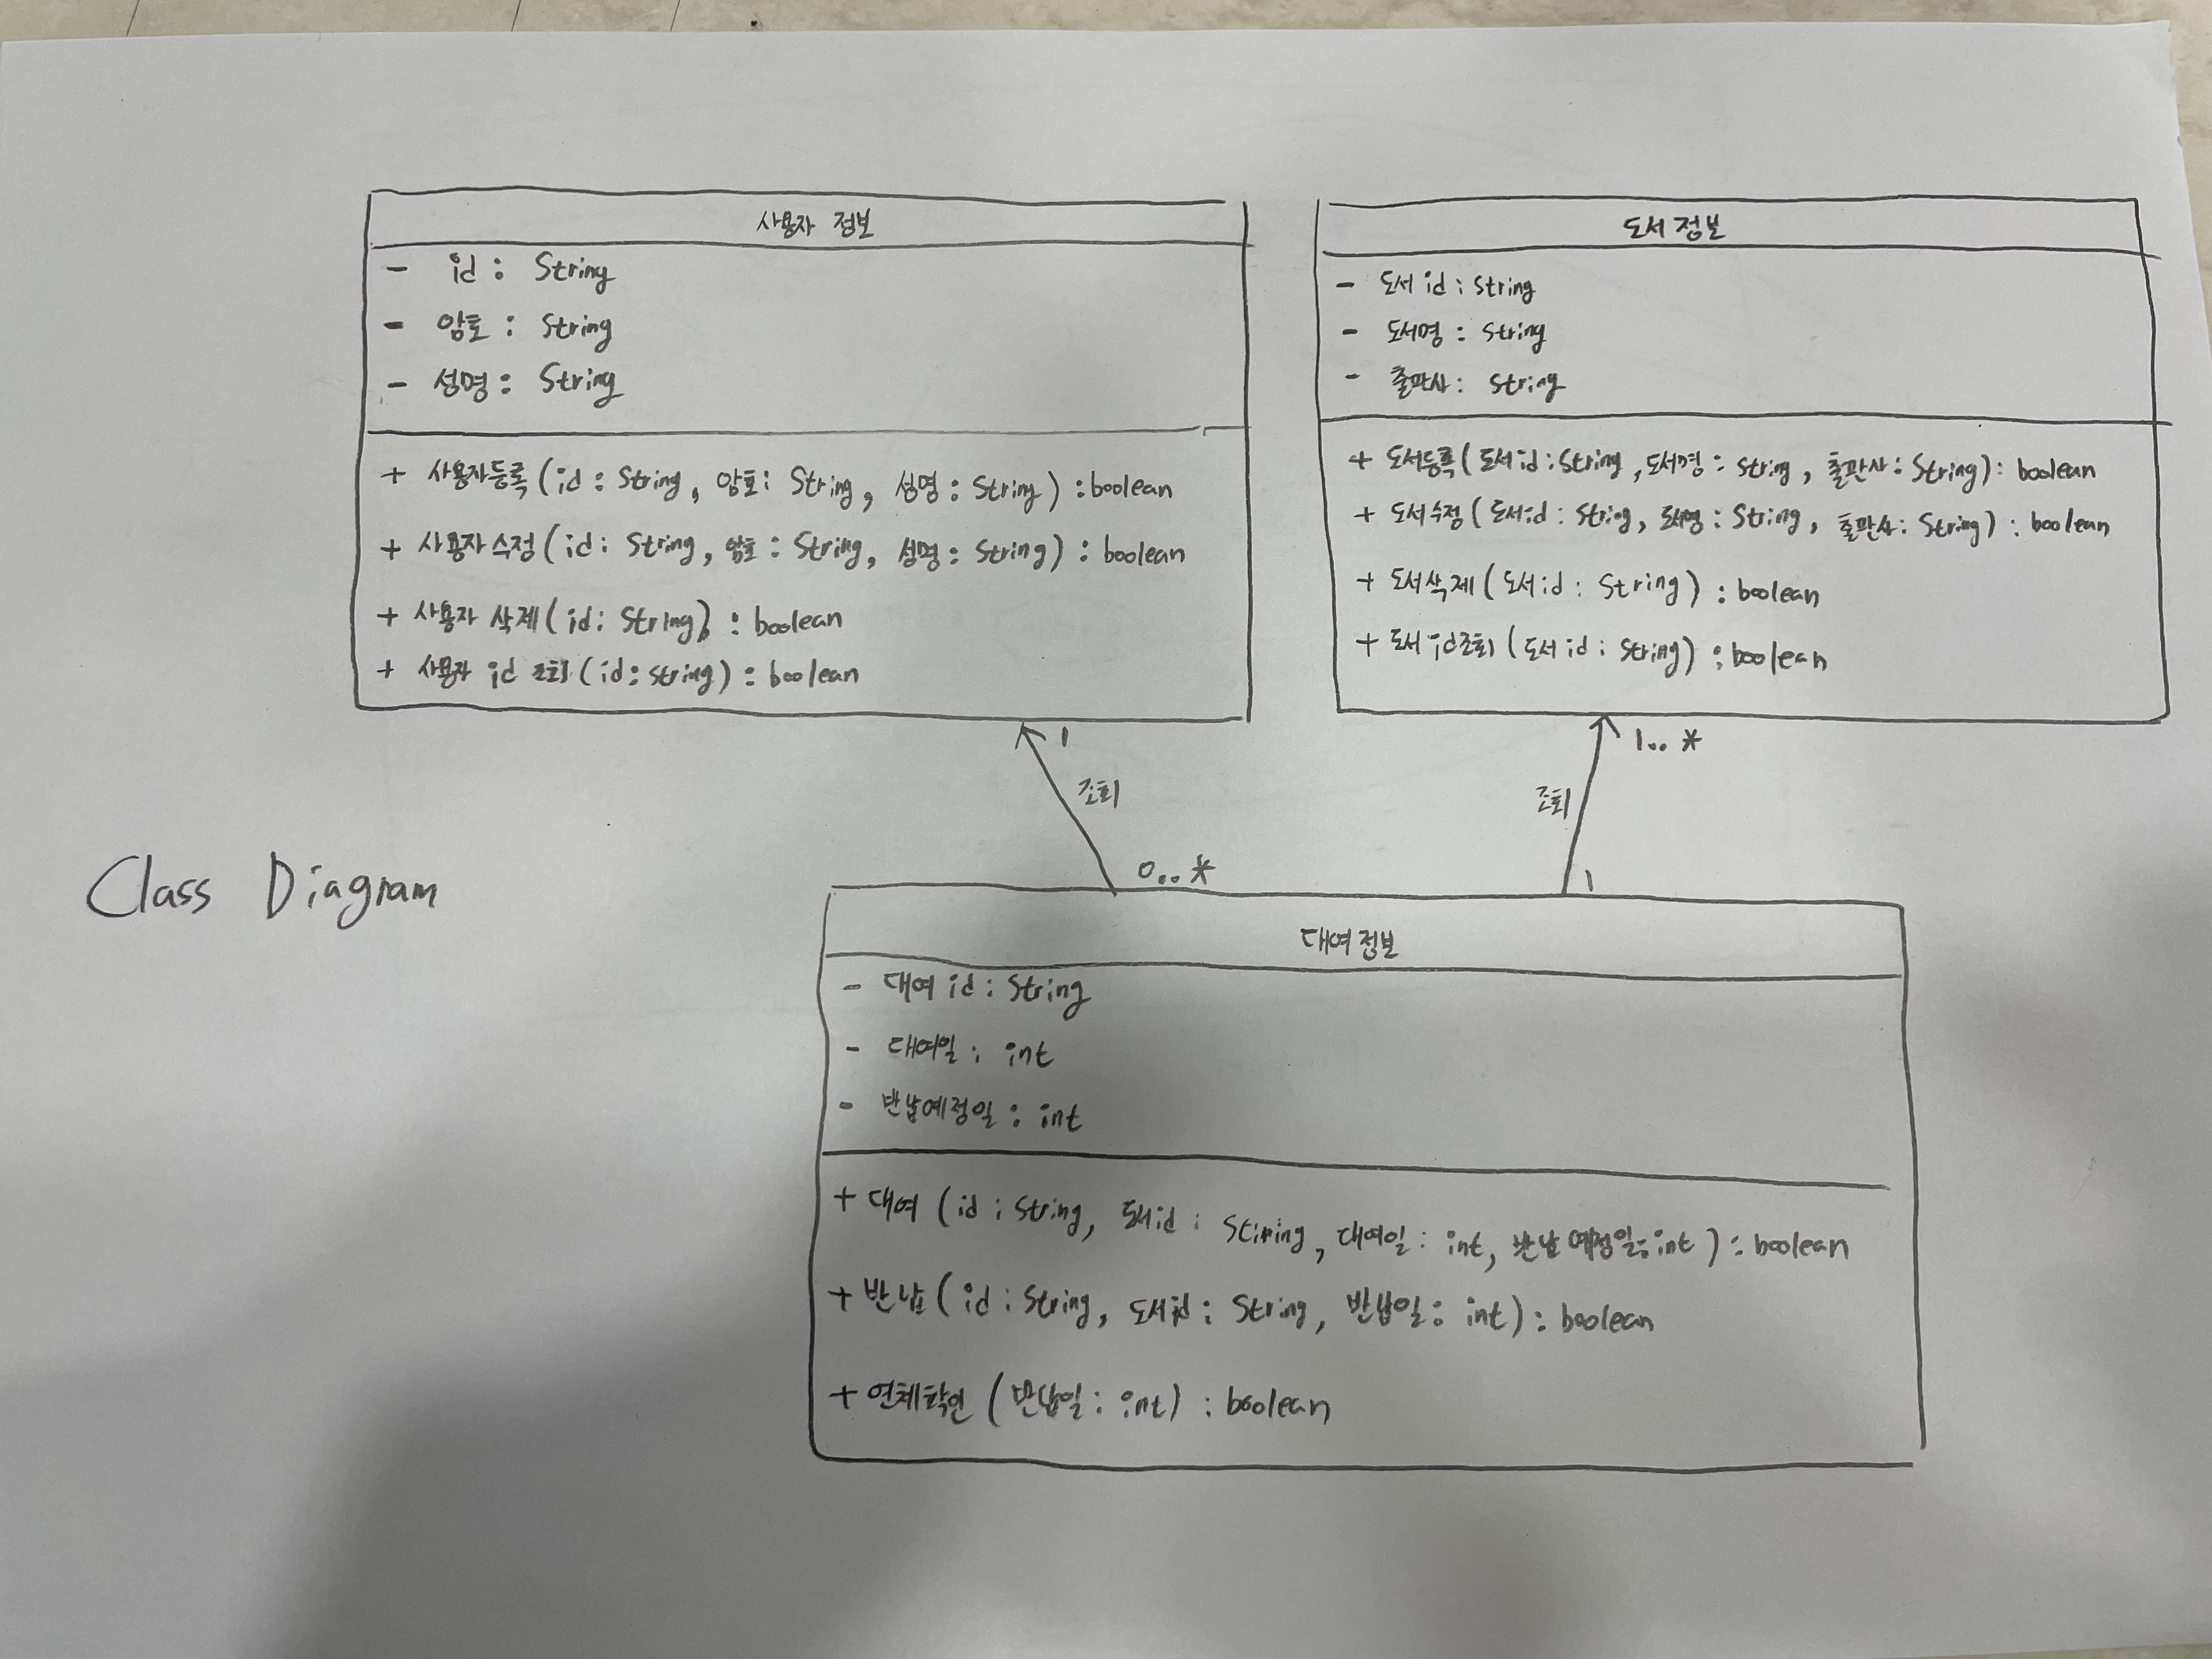 사용자 정보
- id : String
- 암호 : String
- 성명 : String
+ 사용자등록(id : String, 암호 : String, 성명 : String) : boolean
+ 사용자수정(id : String, 암호 : String, 성명 : String) : boolean
+ 사용자 삭제(id : String) : boolean
+ 사용자 id 조회(id : String) : boolean
도서정보
- 도서id : String
- 도서명 : String
- 출판사 : String
+ 도서등록(도서id : String, 도서명 : String, 출판사 : String) : boolean
+ 도서수정(도서id : String, 도서명 : String, 출판사 : String) : boolean
+ 도서삭제(도서id : String) : boolean
+ 도서id조회(도서id : String) : boolean
1
조회
0..*
1..*
조회
1
Class Diagram
대여정보
- 대여id : String
- 대여일 : int
- 반납예정일 : int
+ 대여(id : String, 도서id : String, 대여일 : int, 반납예정일 : int) : boolean
+ 반납(id : String, 도서id : String, 반납일 : int) : boolean
+ 연체확인(반납일 : int) : boolean